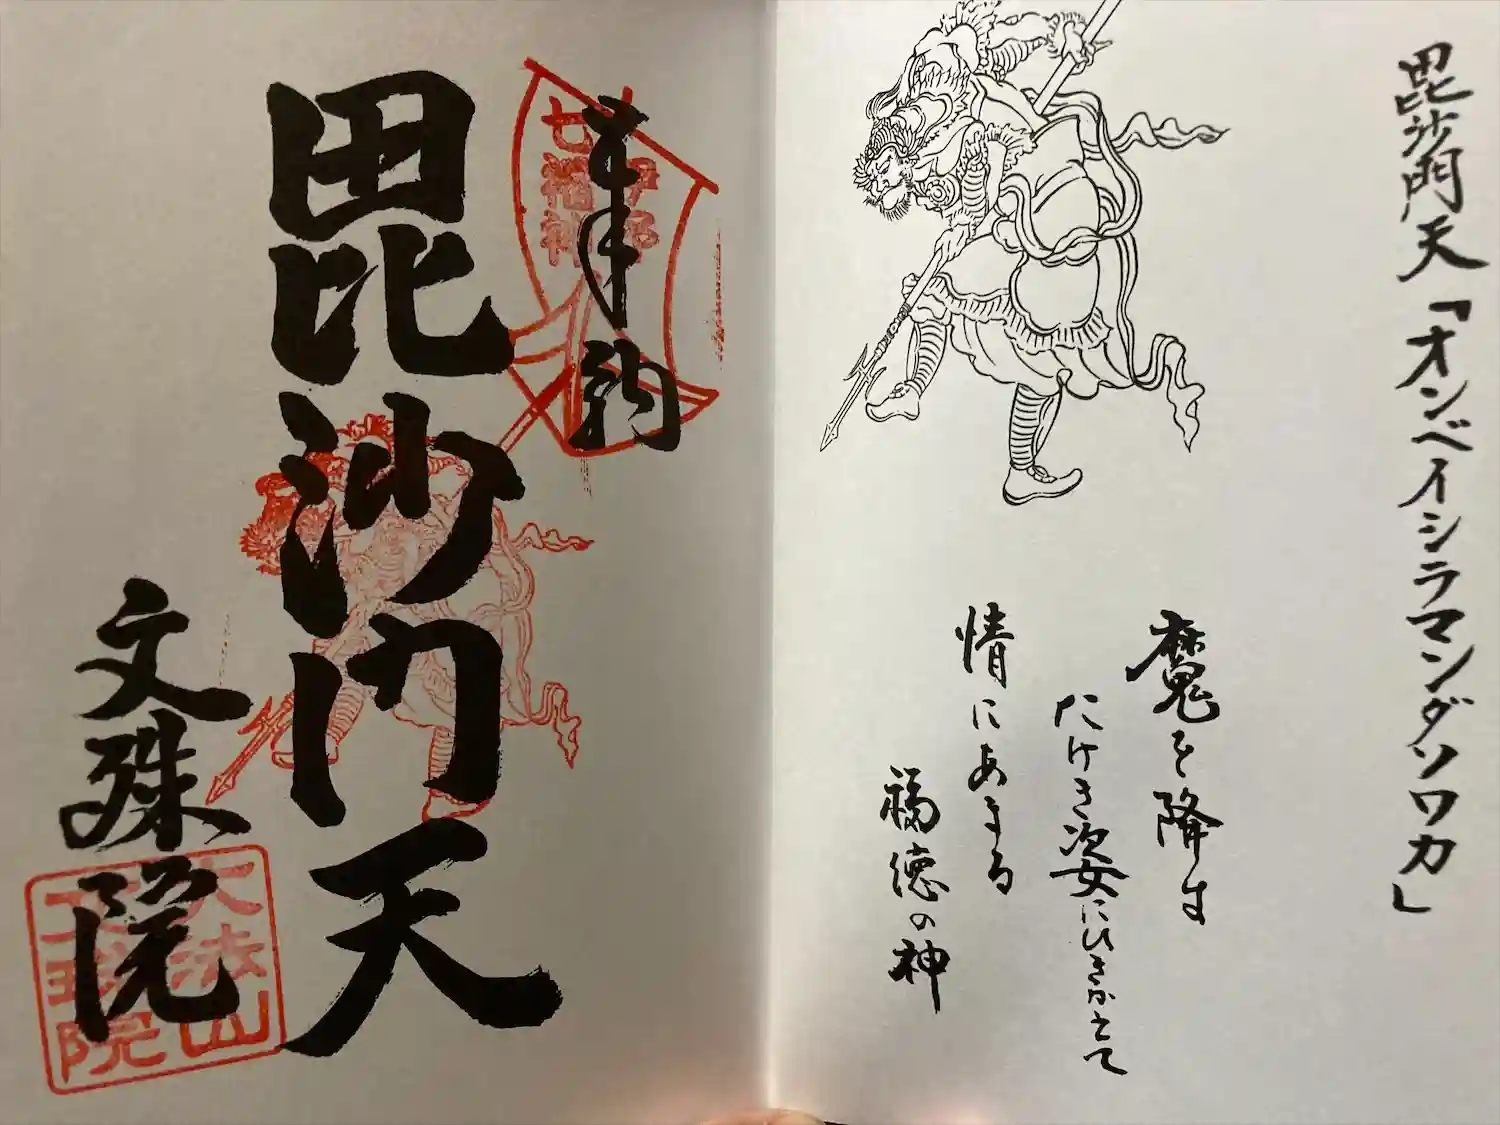 毘沙門天「オンベイシラマンダソワカ」
魔を降す
たけき姿にひきかえて
情にあまる
福徳の神
伊予
七福神
毘沙門天
文殊院
大法山
文殊院